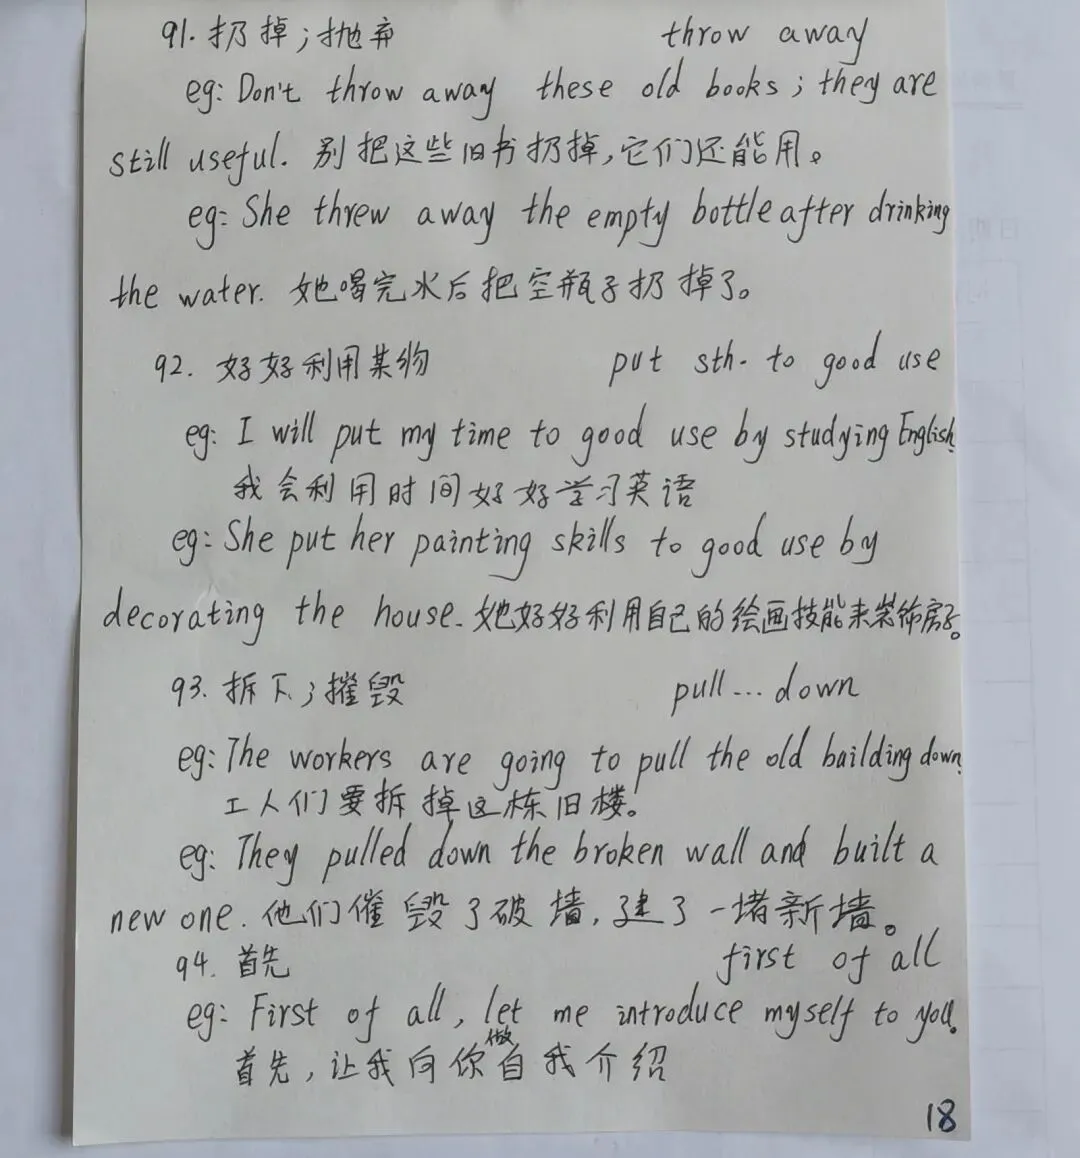 91. 扔掉；抛弃 throw away
eg: Don't throw away these old books; they are
still useful. 别把这些旧书扔掉,它们还能用。
eg: She threw away the empty bottle after drinking
the water. 她喝完水后把空瓶子扔掉了。
92. 好好利用某物 put sth. to good use
eg: I will put my time to good use by studying English.
我会利用时间好好学习英语
eg: She put her painting skills to good use by
decorating the house. 她好好利用自己的绘画技能来装饰房子。
93. 拆下；摧毁 pull... down
eg: The workers are going to pull the old building down.
工人们要拆掉这栋旧楼。
eg: They pulled down the broken wall and built a
new one. 他们催毁了破墙,建了一堵新墙。
94. 首先 first of all
eg: First of all, let me introduce myself to you.
首先,让我向你做自我介绍
18